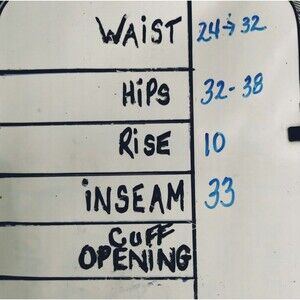 WAIST 24→32
HiPS 32-38
RiSE 10
iNSEAM 33
CUFF
OPENING